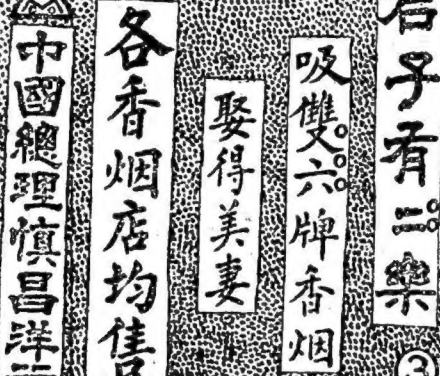 君子有二樂
③
吸雙六牌香烟
娶得美妻
各香烟店均售
中國總理慎昌洋